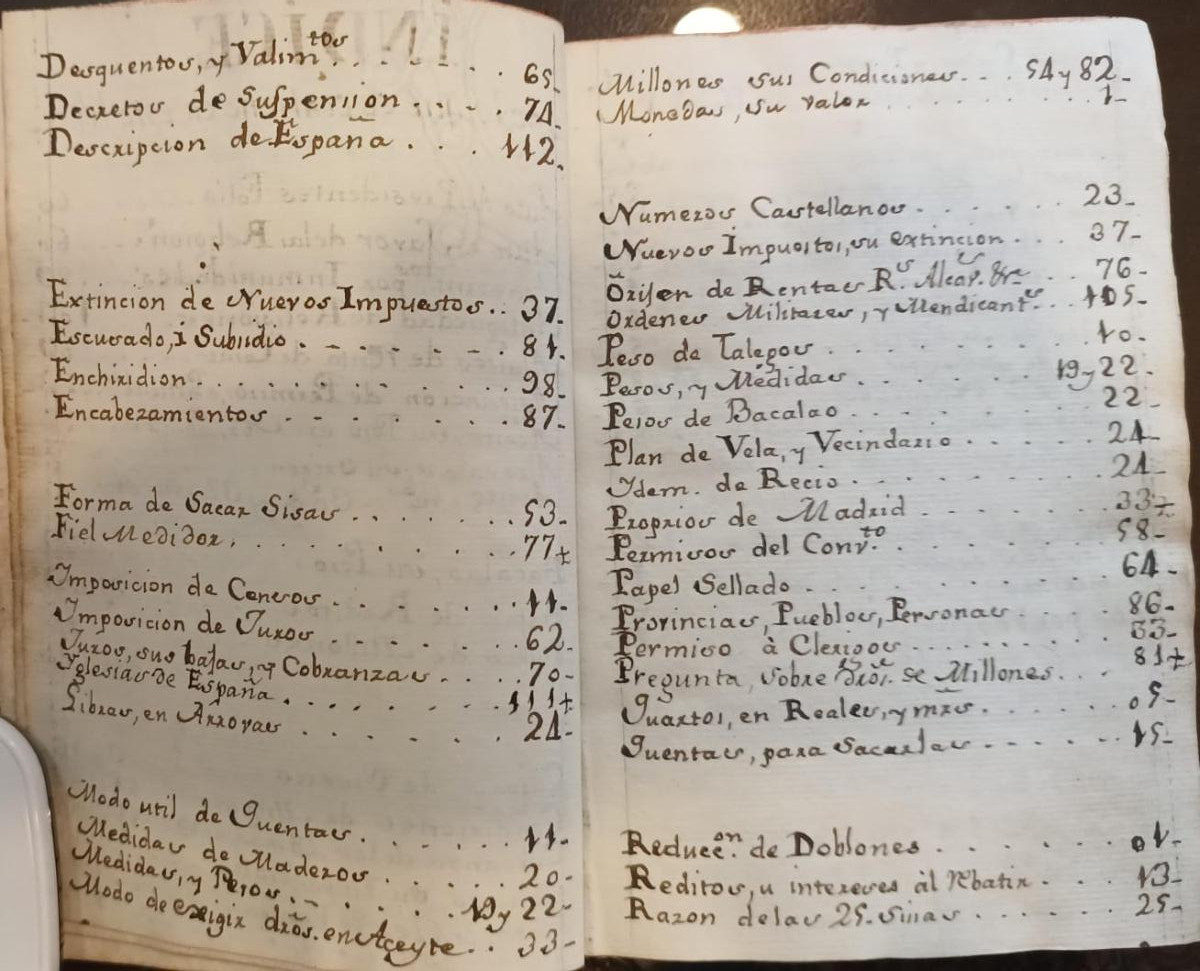 Desquentos, y Valim.tos . . . . . . 65.
Decretos de Suspension . . . . . 74.
Descripcion de España . . . . 112.
Extincion de Nuevos Impuestos . . 37.
Escusado, i Subsidio . . . . . . . 81.
Enchiridion . . . . . . . . . . 98.
Encabezamientos . . . . . . . 87.
Forma de Sacar Sisas . . . . . . 53.
Fiel Medidor . . . . . . . . . . 77+
Imposicion de Censos . . . . . . 11.
Imposicion de Juros . . . . . . 62.
Juros, sus bajas, y Cobranzas . . . 70.
Yglesias de España . . . . . . . 111+
Libras, en Arrovas . . . . . . 21.
Modo util de Quentas . . . . . . 11.
Medidas de Maderos . . . . . 20.
Medidas, y Pesos . . . . . 19 y 22.
Modo de exigir dr̃os. en Aceyte . . 33.
Millones sus Condiciones . . . 54 y 82.
Monedas, su valor . . . . . . . . 1.
Numeros Castellanos . . . . . . 23.
Nuevos Impuestos, su extincion . . . 37.
Orijen de Rentas R.s Alcav.s &c . . 76.
Ordenes Militares, y Mendicant.s . 105.
Peso de Talegos . . . . . . . . . 10.
Pesos, y Medidas . . . . . . 19 y 22.
Pesos de Bacalao . . . . . . . . 22.
Plan de Vela, y Vecindario . . . . . 24.
Ydem. de Recio . . . . . . . . . 21.
Proprios de Madrid . . . . . . . 33+
Permisos del Conv.to . . . . . . . 58.
Papel Sellado . . . . . . . . . 64.
Provincias, Pueblos, Personas . . . . 86.
Permiso à Clerigos . . . . . . . 33.
Pregunta, sobre dr̃os. de Millones . . . 81+
Quartos, en Reales, y mrs̃ . . . . . 05.
Quentas, para Sacarlas . . . . . . 15.
Reducc.on de Doblones . . . . . . 01.
Reditos, u intereses àl Rebatir . . . 13.
Razon de las 25. Sisas . . . . . . 25.